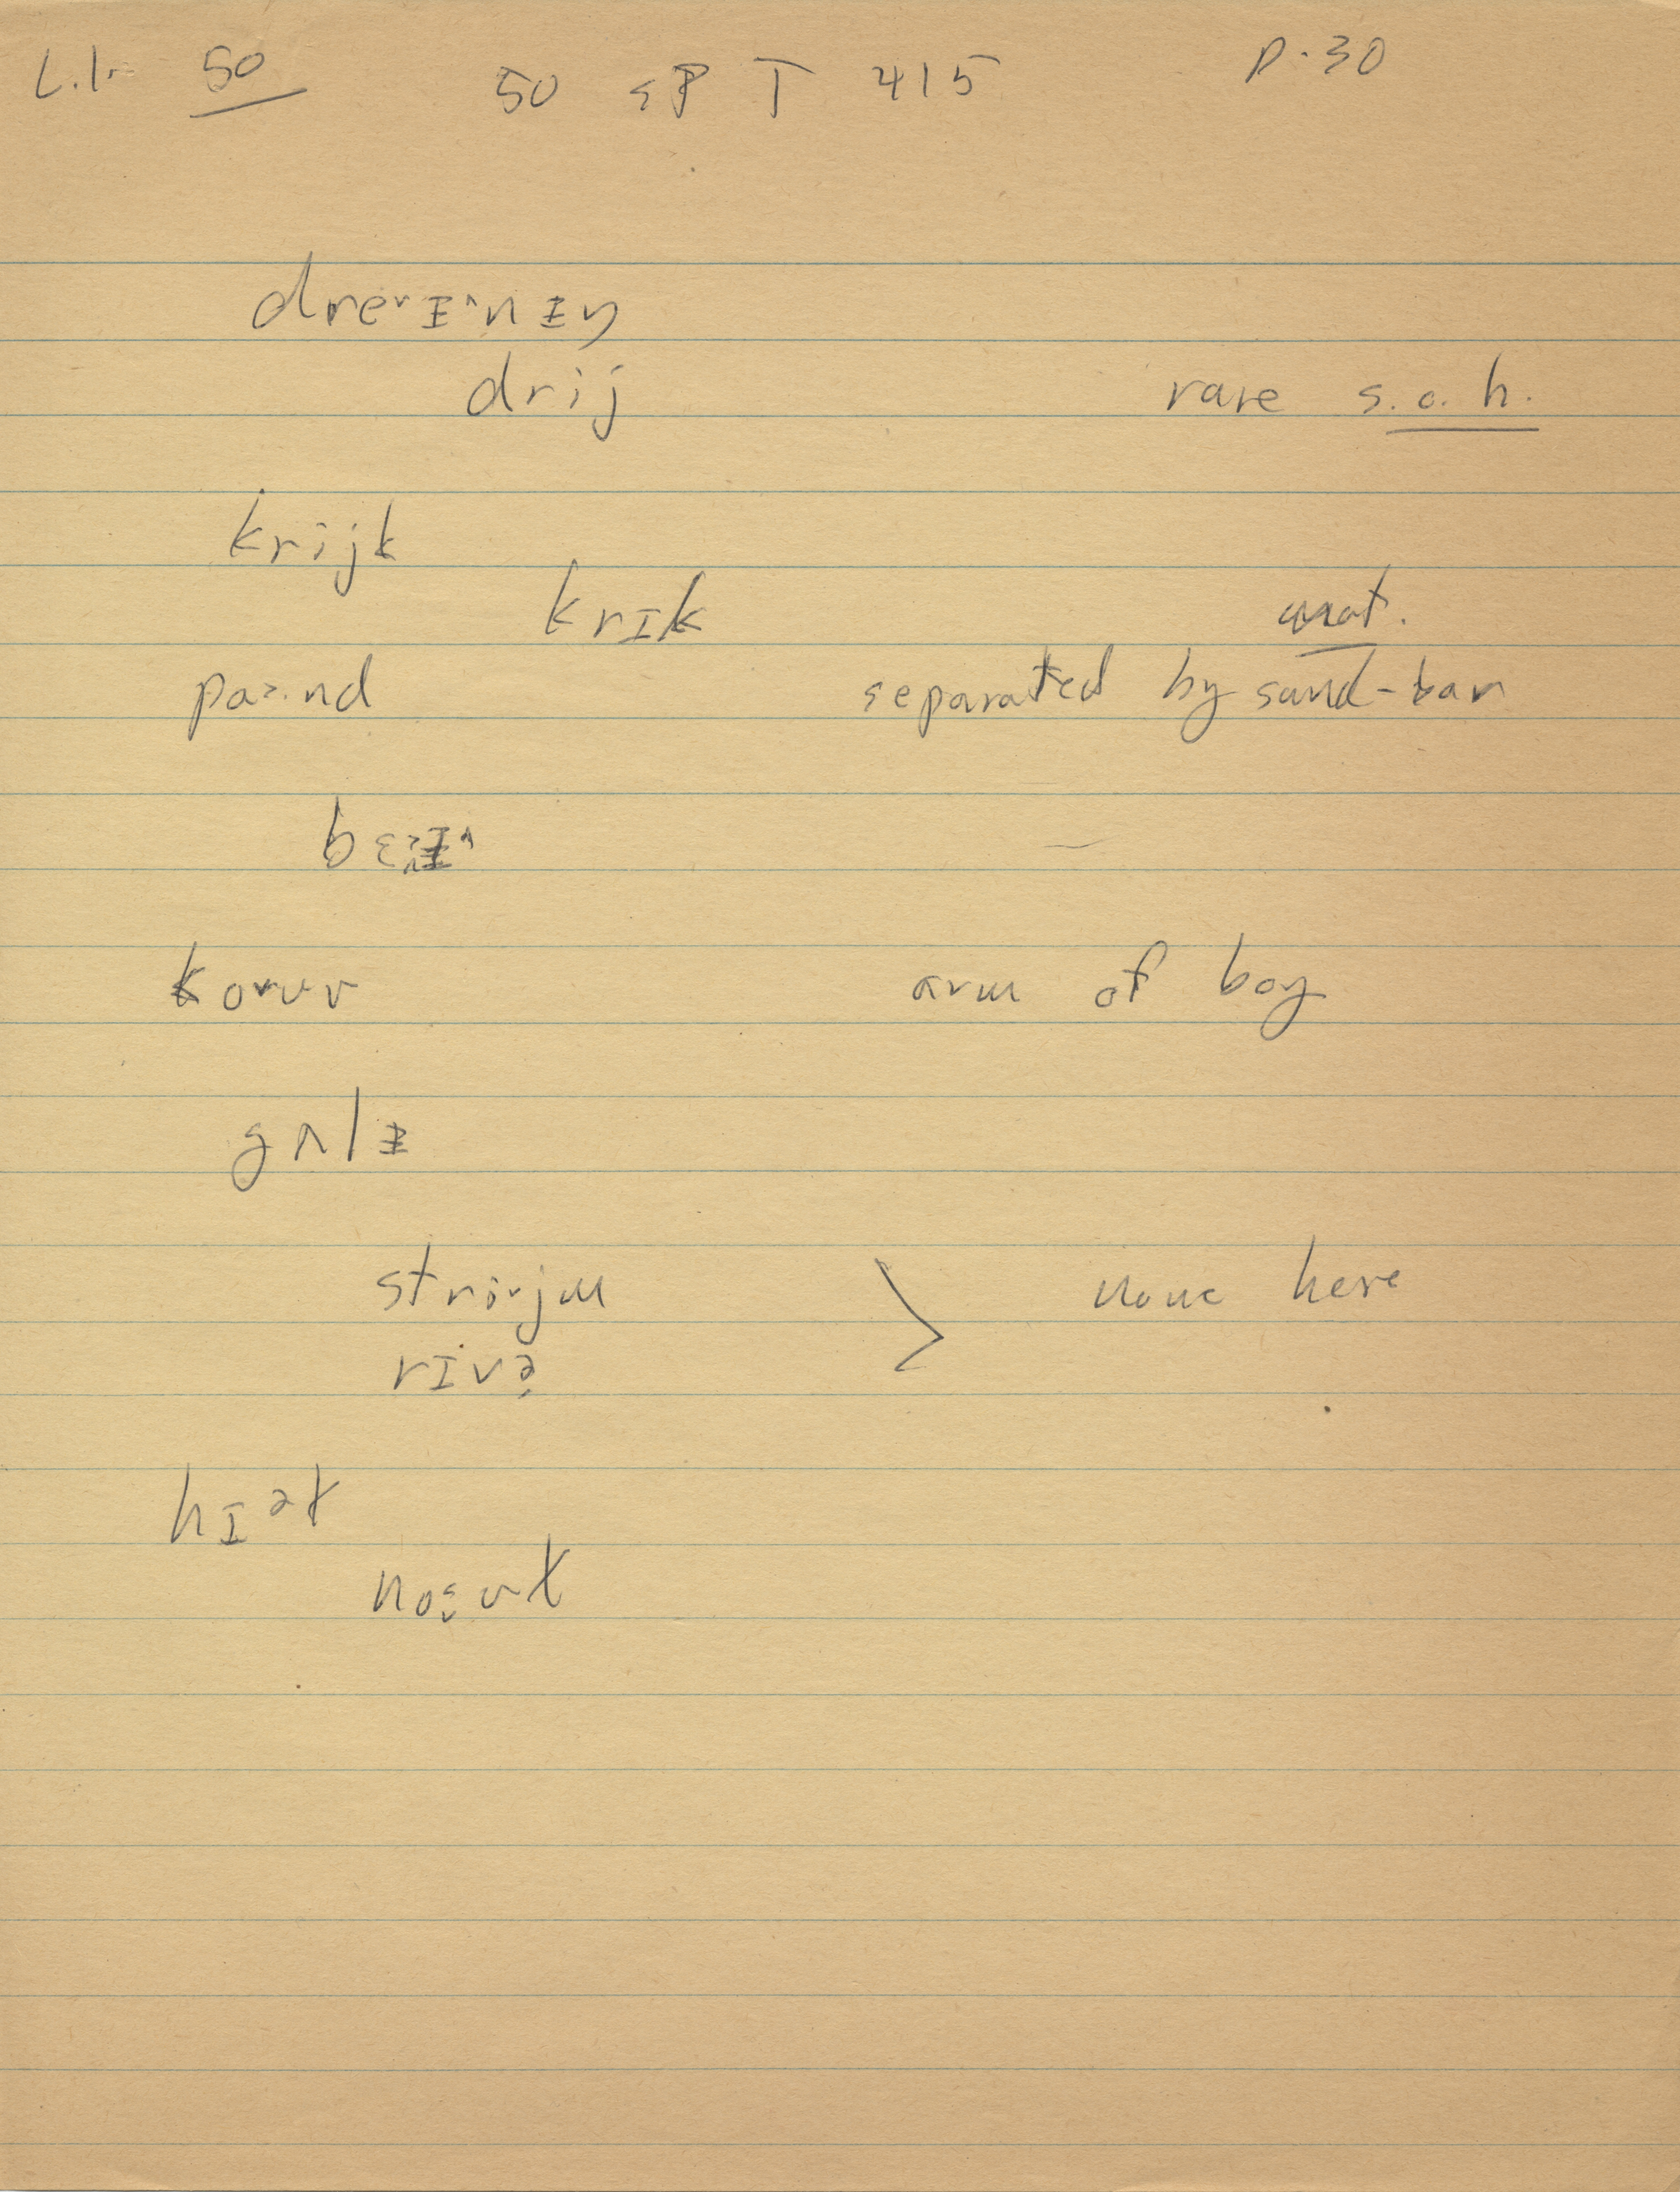 L.I. 50 50 SP T 415 p. 30
dre˅ɪ˄nɪŋ
drij rare s.o.h.
krijk
krɪk nat.
pa>.nd separated by sand-bar
kovv arm of bay
gʌlɪ
stri˅jm > none here
rɪvə
hɪət